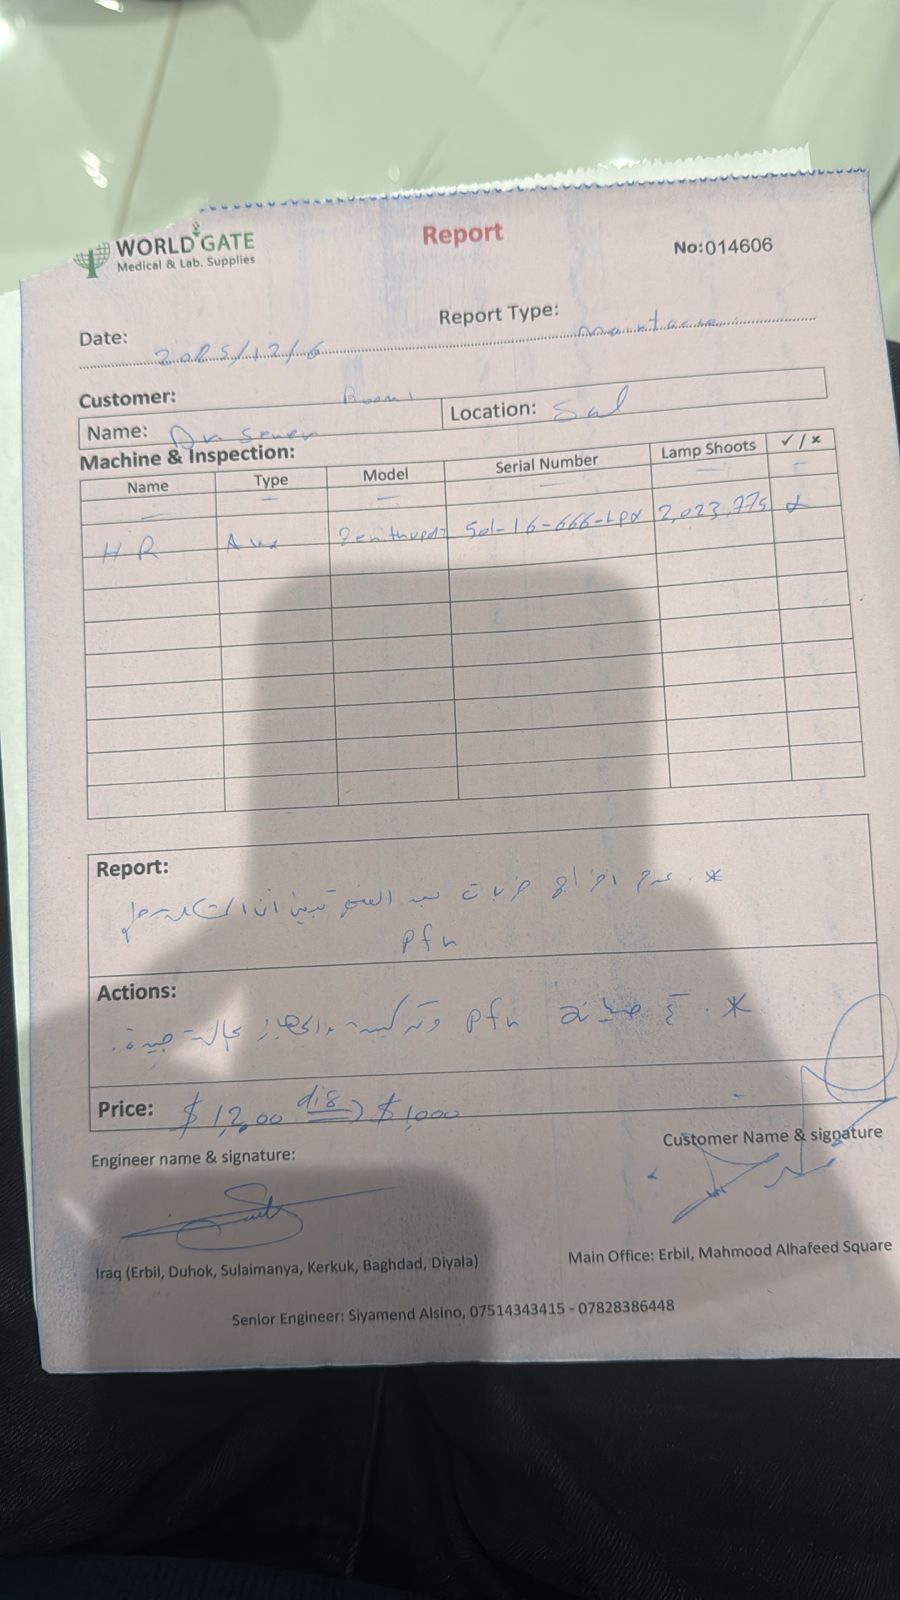 WORLD GATE
Medical & Lab. Supplies
Report
No:014606
Report Type:
Date: 2025/12/6
Customer:
Room 1
Name: Dr. Sener
Location: Sul
Machine & Inspection:
Name Type Model Serial Number Lamp Shoots ✓/×
HR 2,023,775
Report:
*. عدم اخراج ضربات بعد الفحص تبين ان
pfn
Actions:
*. تم صيانة pfn وتركيبه والجهاز بحالة جيدة.
Price: $ 12,00 dis $ 1,000
Engineer name & signature:
Customer Name & signature
Iraq (Erbil, Duhok, Sulaimanya, Kerkuk, Baghdad, Diyala)
Main Office: Erbil, Mahmood Alhafeed Square
Senior Engineer: Siyamend Alsino, 07514343415 - 07828386448